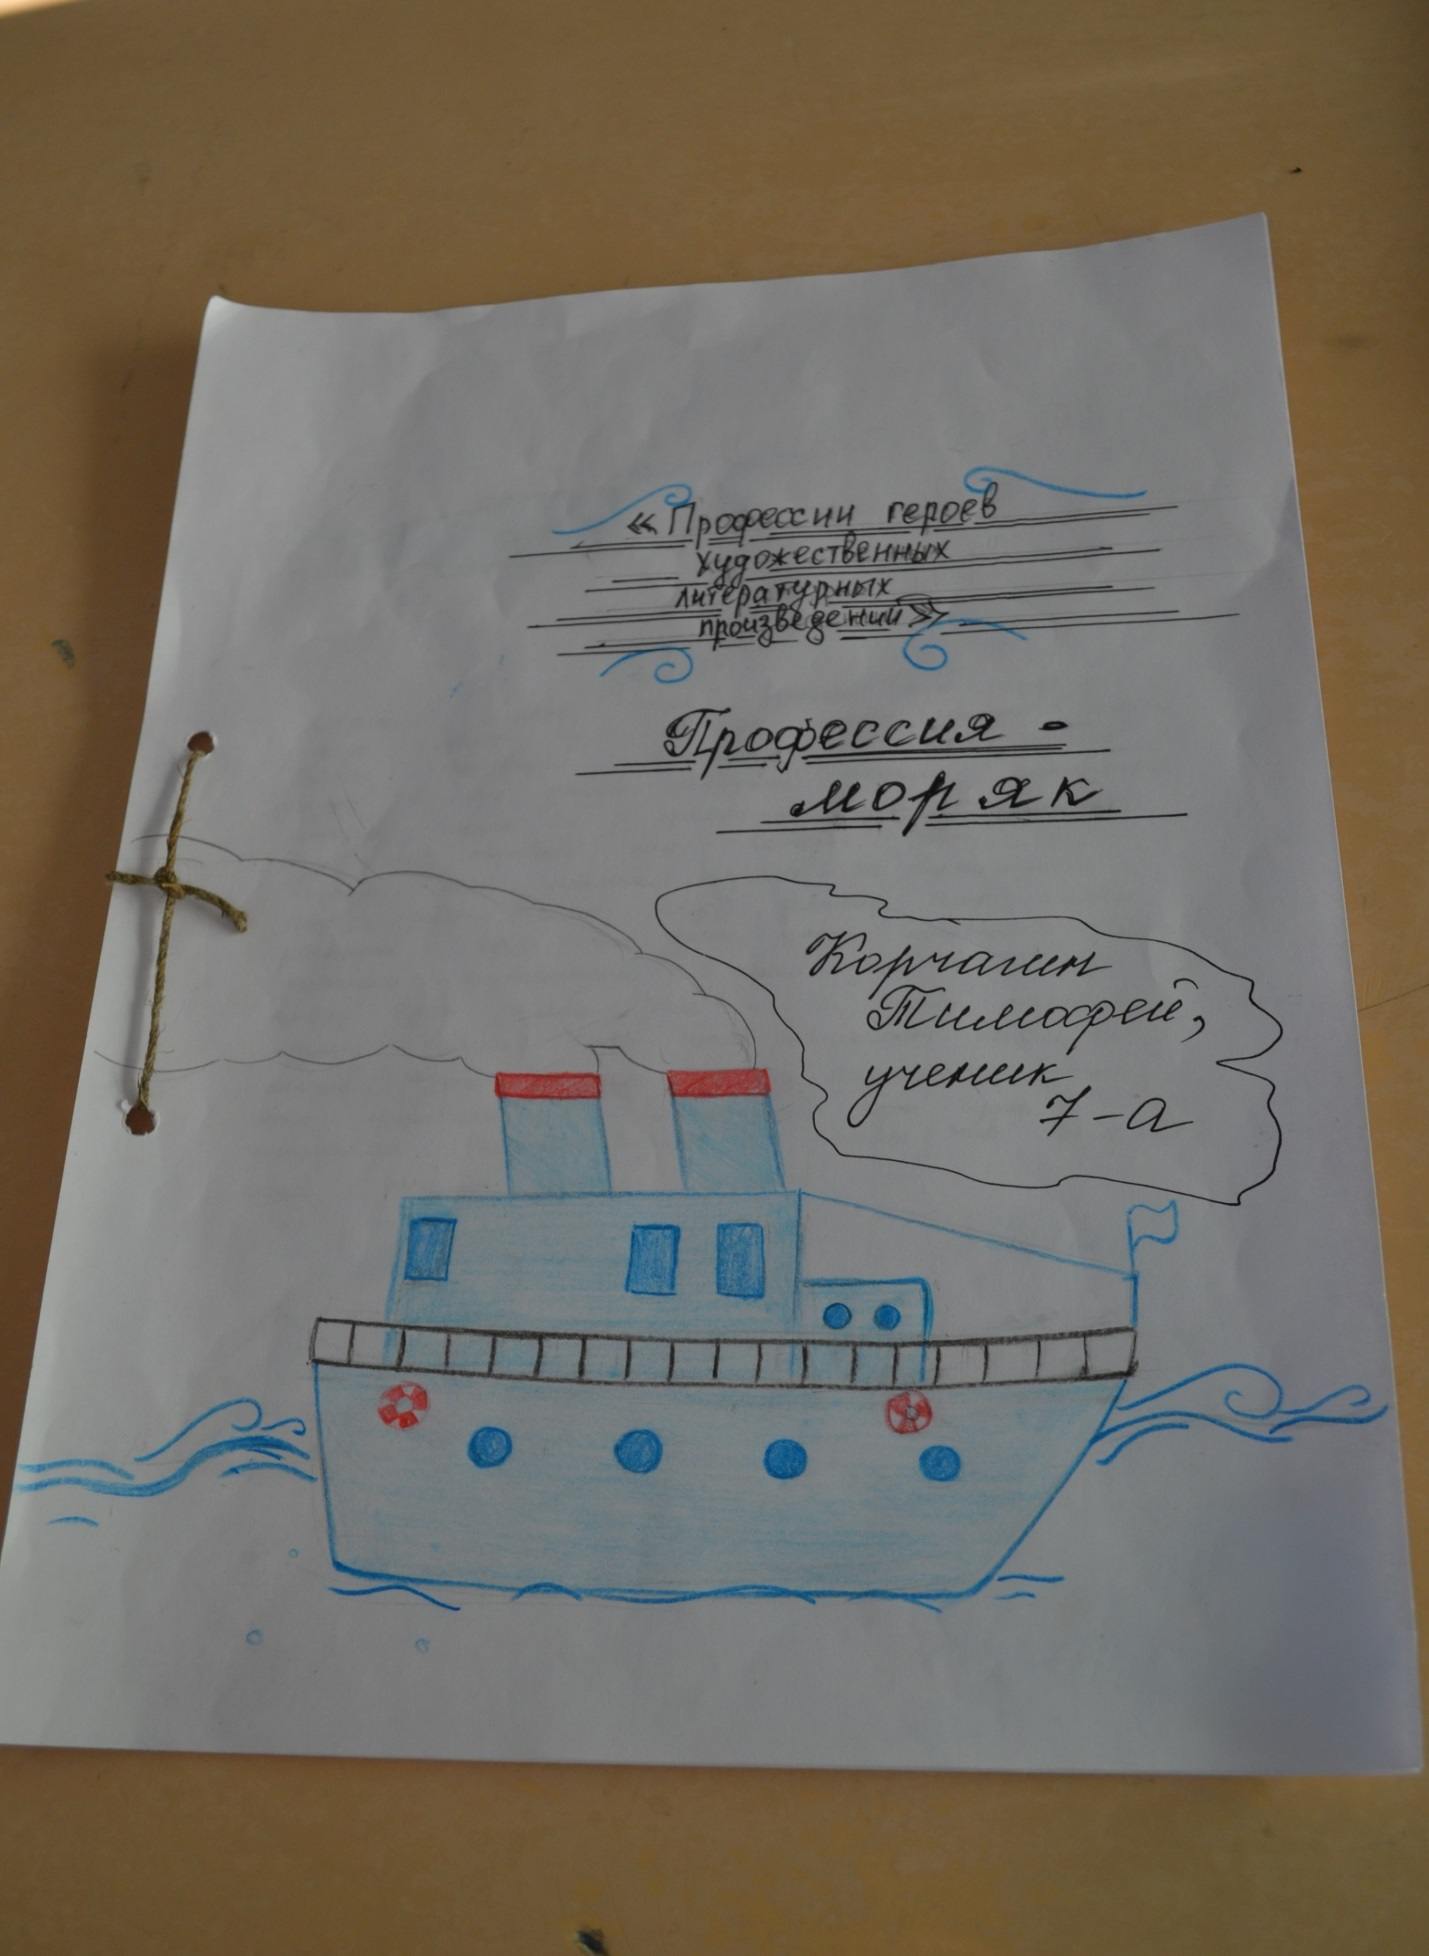 «Профессии героев
художественных
литературных
произведений»
Профессия -
моряк
Корчагин
Тимофей,
ученик
7-а